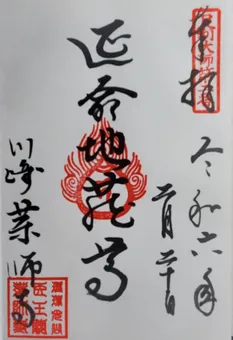 奉拝
令和六年
二月二十日
延命地蔵尊
川崎薬師寺